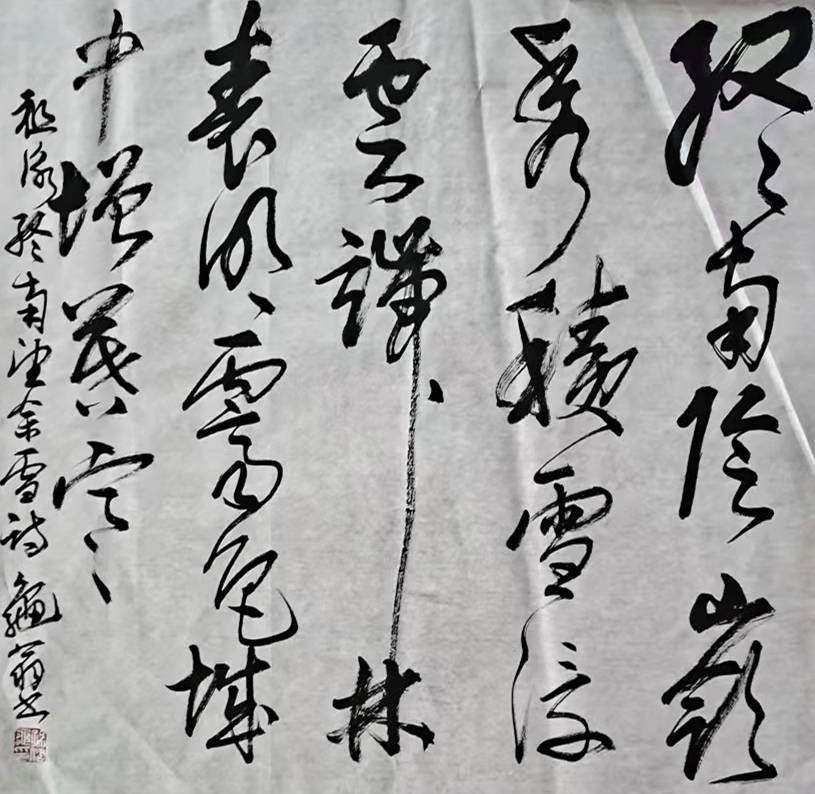 终南阴岭
秀积雪浮
云端林
表明霁色城
中增暮寒
祖咏终南望余雪诗 龜翁书